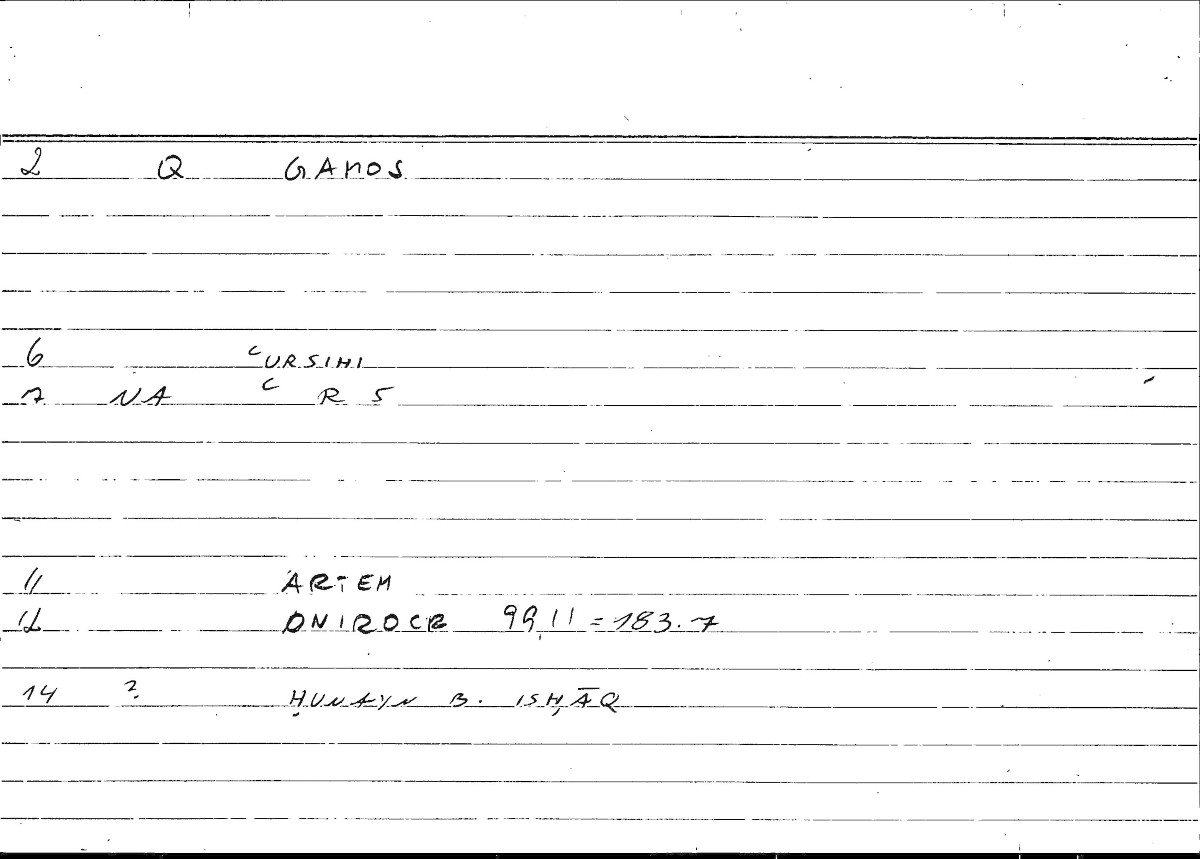 2 Q GAMOS
6 ʿURSIHI
7 NA ʿ R S
11 ARTEM
12 ONIROCR 99,11 = 183.7
14 ? ḤUNAYN B. ISḤĀQ